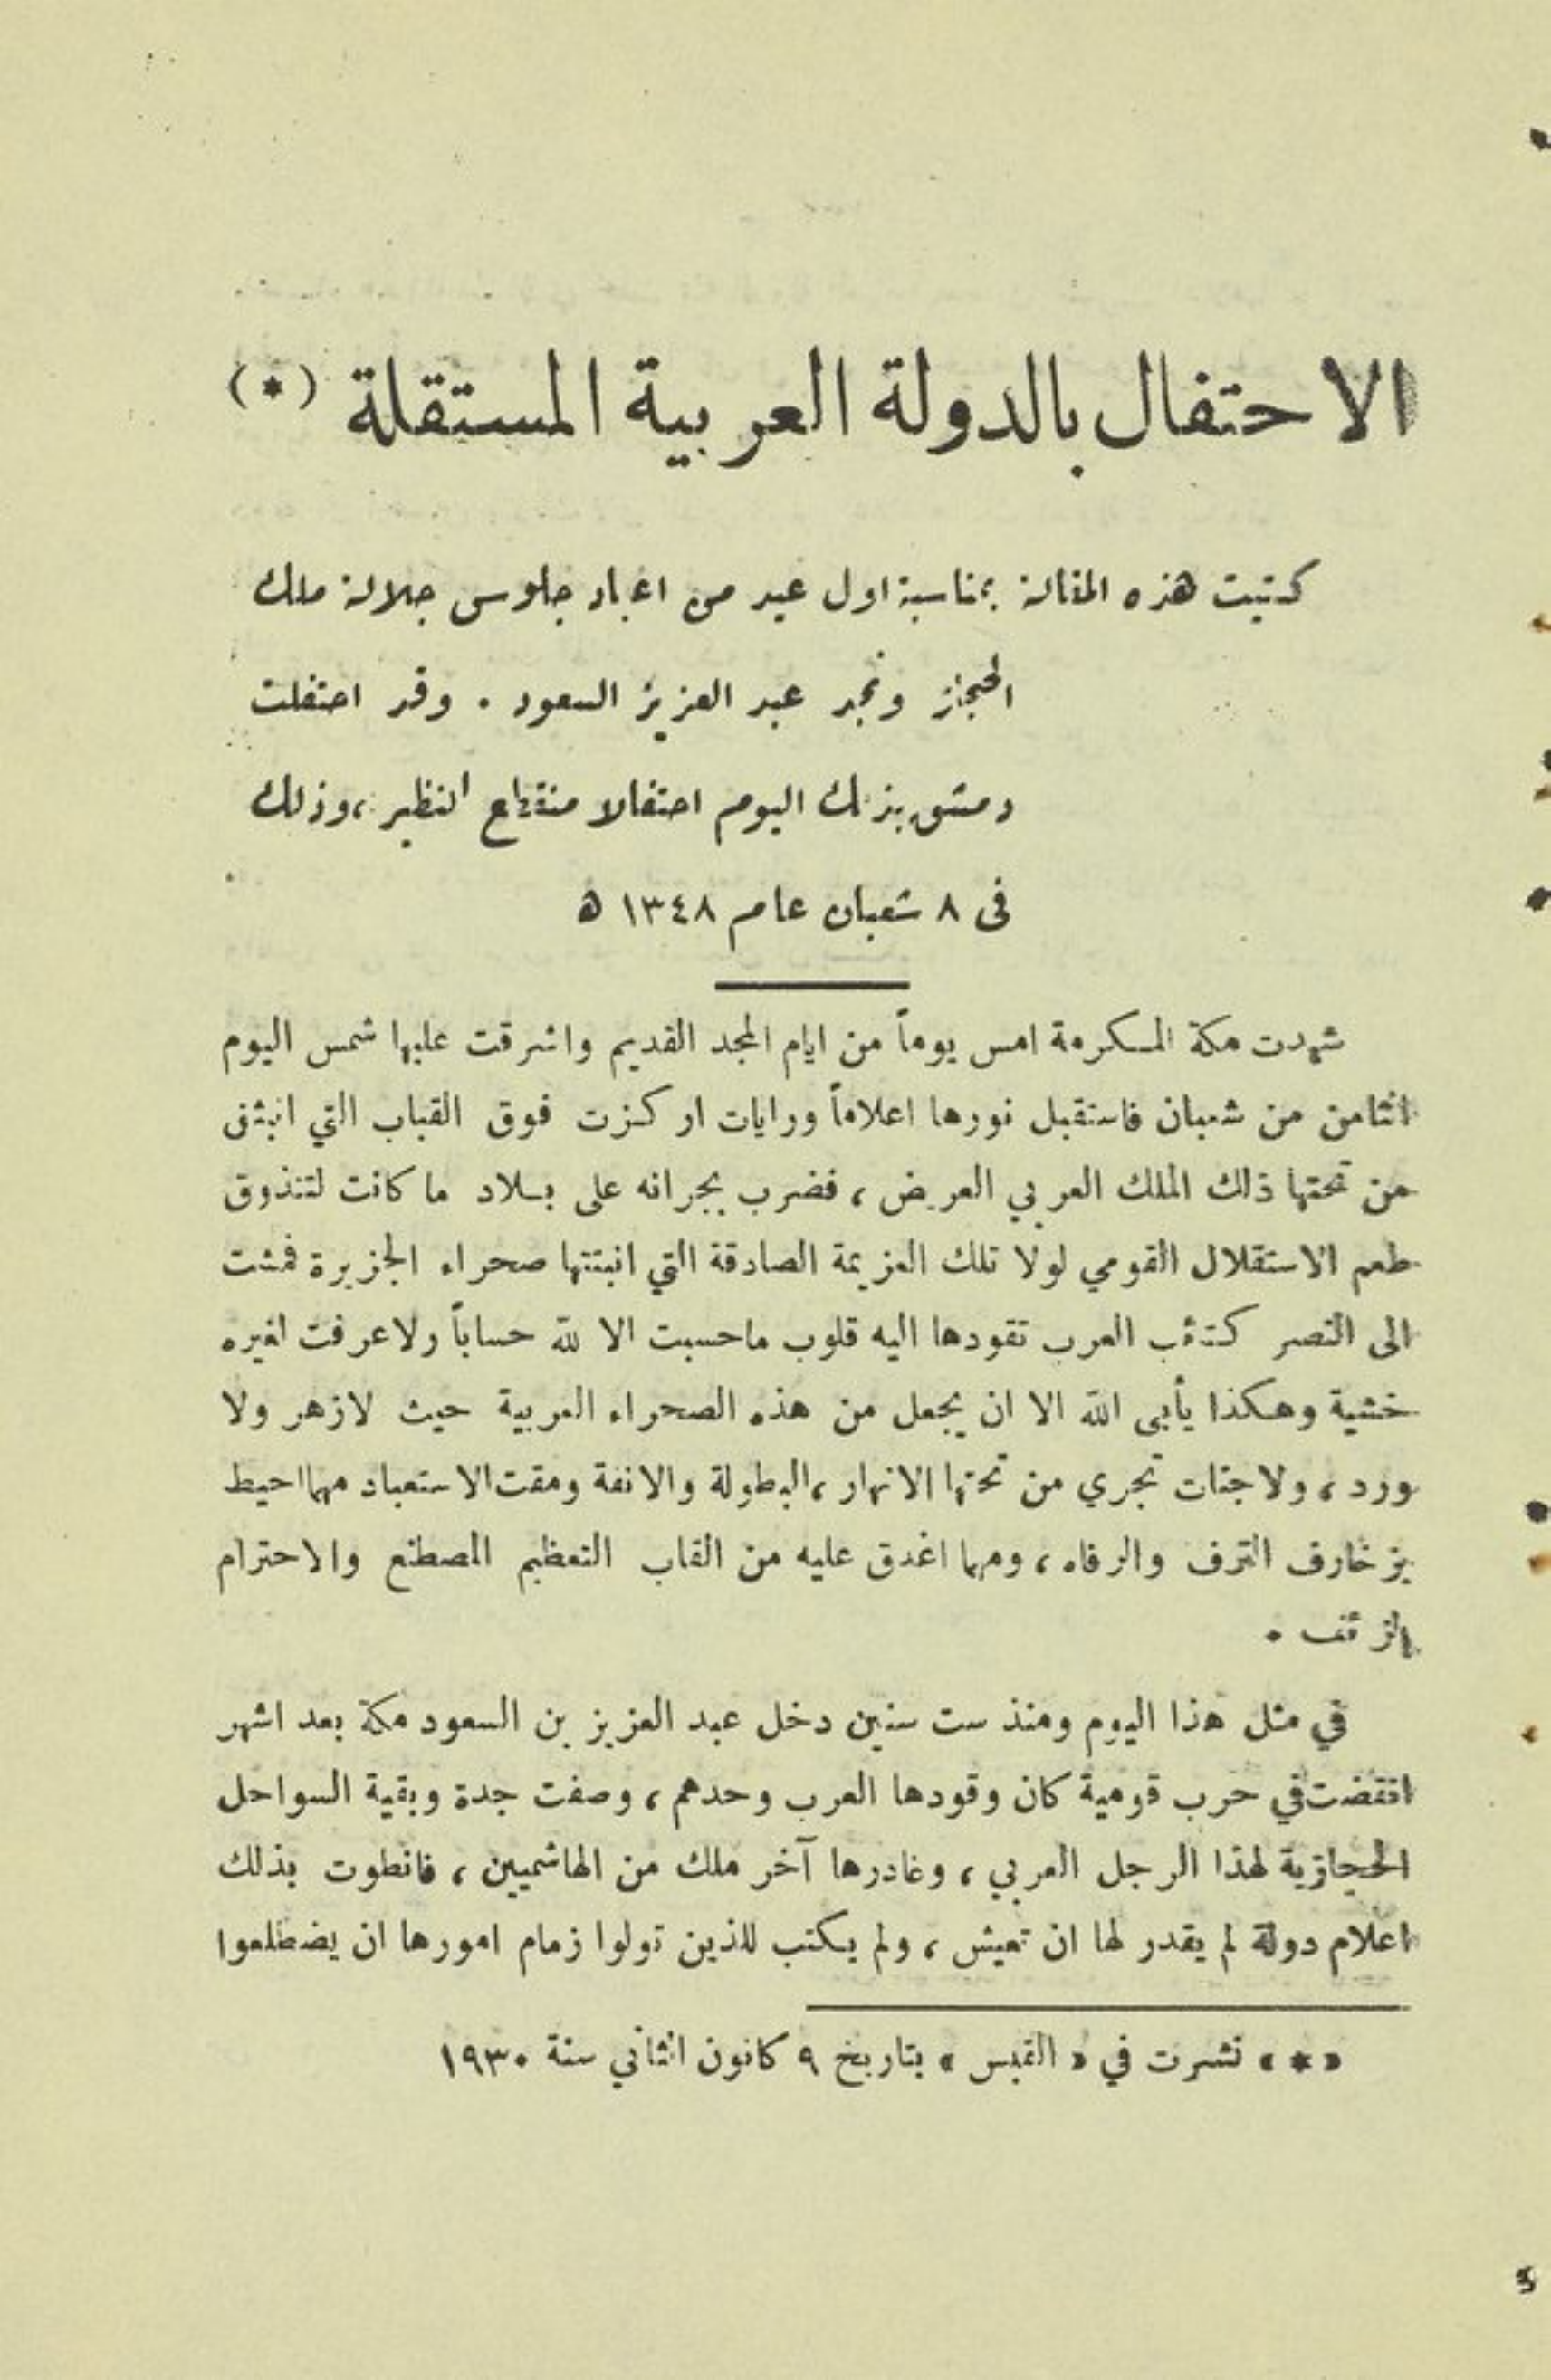 الاحتفال بالدولة العربية المستقلة (*)
كتبت هذه المقالة بمناسبة اول عيد من اعياد جلوس جلالة ملك
الحجاز ونجد عبد العزيز السعود . وقد احتفلت
دمشق بذلك اليوم احتفالا منقطع النظير ، وذلك
في ٨ شعبان عام ١٣٤٨ ه
شهدت مكة المكرمة امس يوماً من ايام المجد القديم واشرقت عليها شمس اليوم
الثامن من شعبان فاستقبل نورها اعلاماً ورايات اركزت فوق القباب التي انبثق
من تحتها ذلك الملك العربي العريض ، فضرب بجرانه على بلاد ما كانت لتتذوق
طعم الاستقلال القومي لولا تلك العزيمة الصادقة التي انبتتها صحراء الجزيرة فمشت
الى النصر كتئب العرب تقودها اليه قلوب ماحسبت الا لله حساباً ولاعرفت لغيره
خشية وهكذا يأبى الله الا ان يجعل من هذه الصحراء العربية حيث لازهر ولا
ورد ، ولا جنات تجري من تحتها الانهار ، البطولة والانفة ومقت الاستعباد مهما احيط
بزخارف الترف والرفاه ، ومهما اغدق عليه من القاب التعظيم المصطنع والاحترام
الزئف .
في مثل هذا اليوم ومنذ ست سنين دخل عبد العزيز بن السعود مكة بعد اشهر
انقضت في حرب قومية كان وقودها العرب وحدهم ، وصفت جدة وبقية السواحل
الحجازية لهذا الرجل العربي ، وغادرها آخر ملك من الهاشميين ، فانطوت بذلك
اعلام دولة لم يقدر لها ان تعيش ، ولم يكتب للذين تولوا زمام امورها ان يضطلعوا
«*» نشرت في « القبس » بتاريخ ٩ كانون الثاني سنة ١٩٣٠